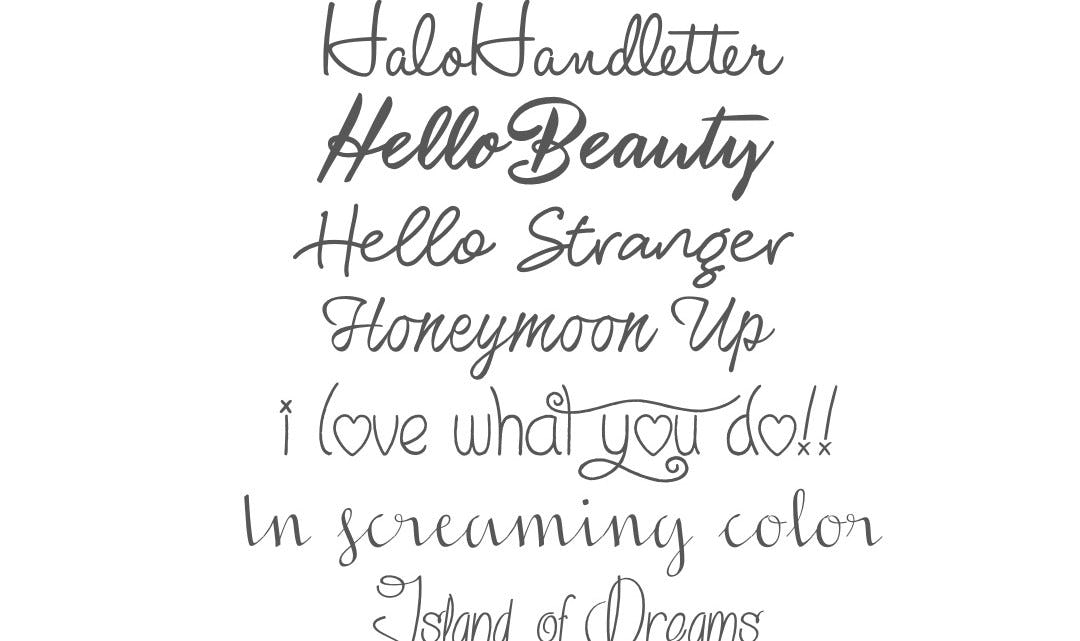 HaloHandletter
HelloBeauty
Hello Stranger
Honeymoon Up
i love what you do!!
In screaming color
Island of Dreams